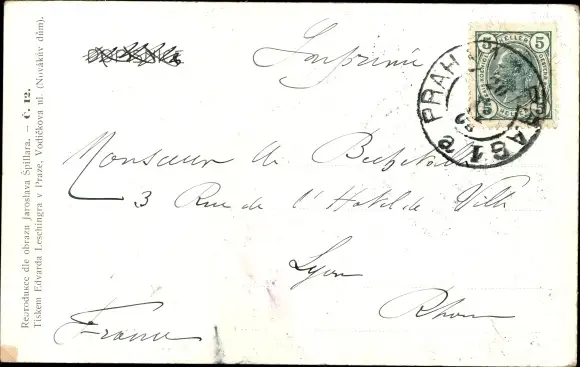 Imprimé
5 HELLER 5
PRAHA 1 PRAG 1
Monsieur de
3 Rue de l'Hotel de Ville
Lyon
Rhone
France
Reprodukce dle obrazu Jaroslava Špillara. – Č. 12.
Tiskem Edvarda Leschingra v Praze, Vodičkova ul. (Novákův dům).